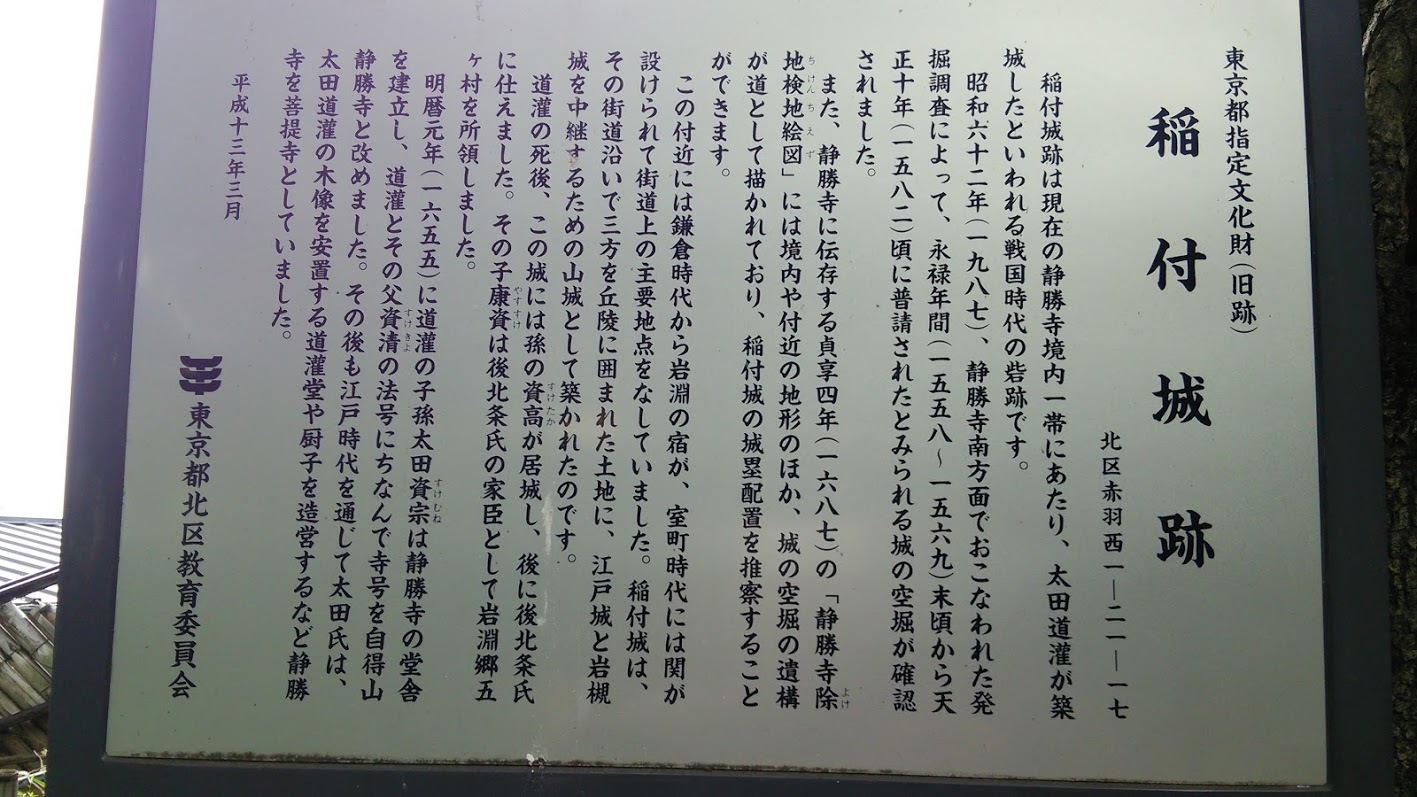 東京都指定文化財(旧跡)
稲付城跡
北区赤羽西一―二一―一七
稲付城跡は現在の静勝寺境内一帯にあたり、太田道灌が築
城したといわれる戦国時代の砦跡です。
昭和六十二年(一九八七)、静勝寺南方面でおこなわれた発
掘調査によって、永禄年間(一五五八〜一五六九)末頃から天
正十年(一五八二)頃に普請されたとみられる城の空堀が確認
されました。
また、静勝寺に伝存する貞享四年(一六八七)の「静勝寺除
地検地絵図」には境内や付近の地形のほか、城の空堀の遺構
が道として描かれており、稲付城の城塁配置を推察すること
ができます。
この付近には鎌倉時代から岩淵の宿が、室町時代には関が
設けられて街道上の主要地点をなしていました。稲付城は、
その街道沿いで三方を丘陵に囲まれた土地に、江戸城と岩槻
城を中継するための山城として築かれたのです。
道灌の死後、この城には孫の資高が居城し、後に後北条氏
に仕えました。その子康資は後北条氏の家臣として岩淵郷五
ヶ村を所領しました。
明暦元年(一六五五)に道灌の子孫太田資宗は静勝寺の堂舎
を建立し、道灌とその父資清の法号にちなんで寺号を自得山
静勝寺と改めました。その後も江戸時代を通じて太田氏は、
太田道灌の木像を安置する道灌堂や厨子を造営するなど静勝
寺を菩提寺としていました。
平成十三年三月
東京都北区教育委員会